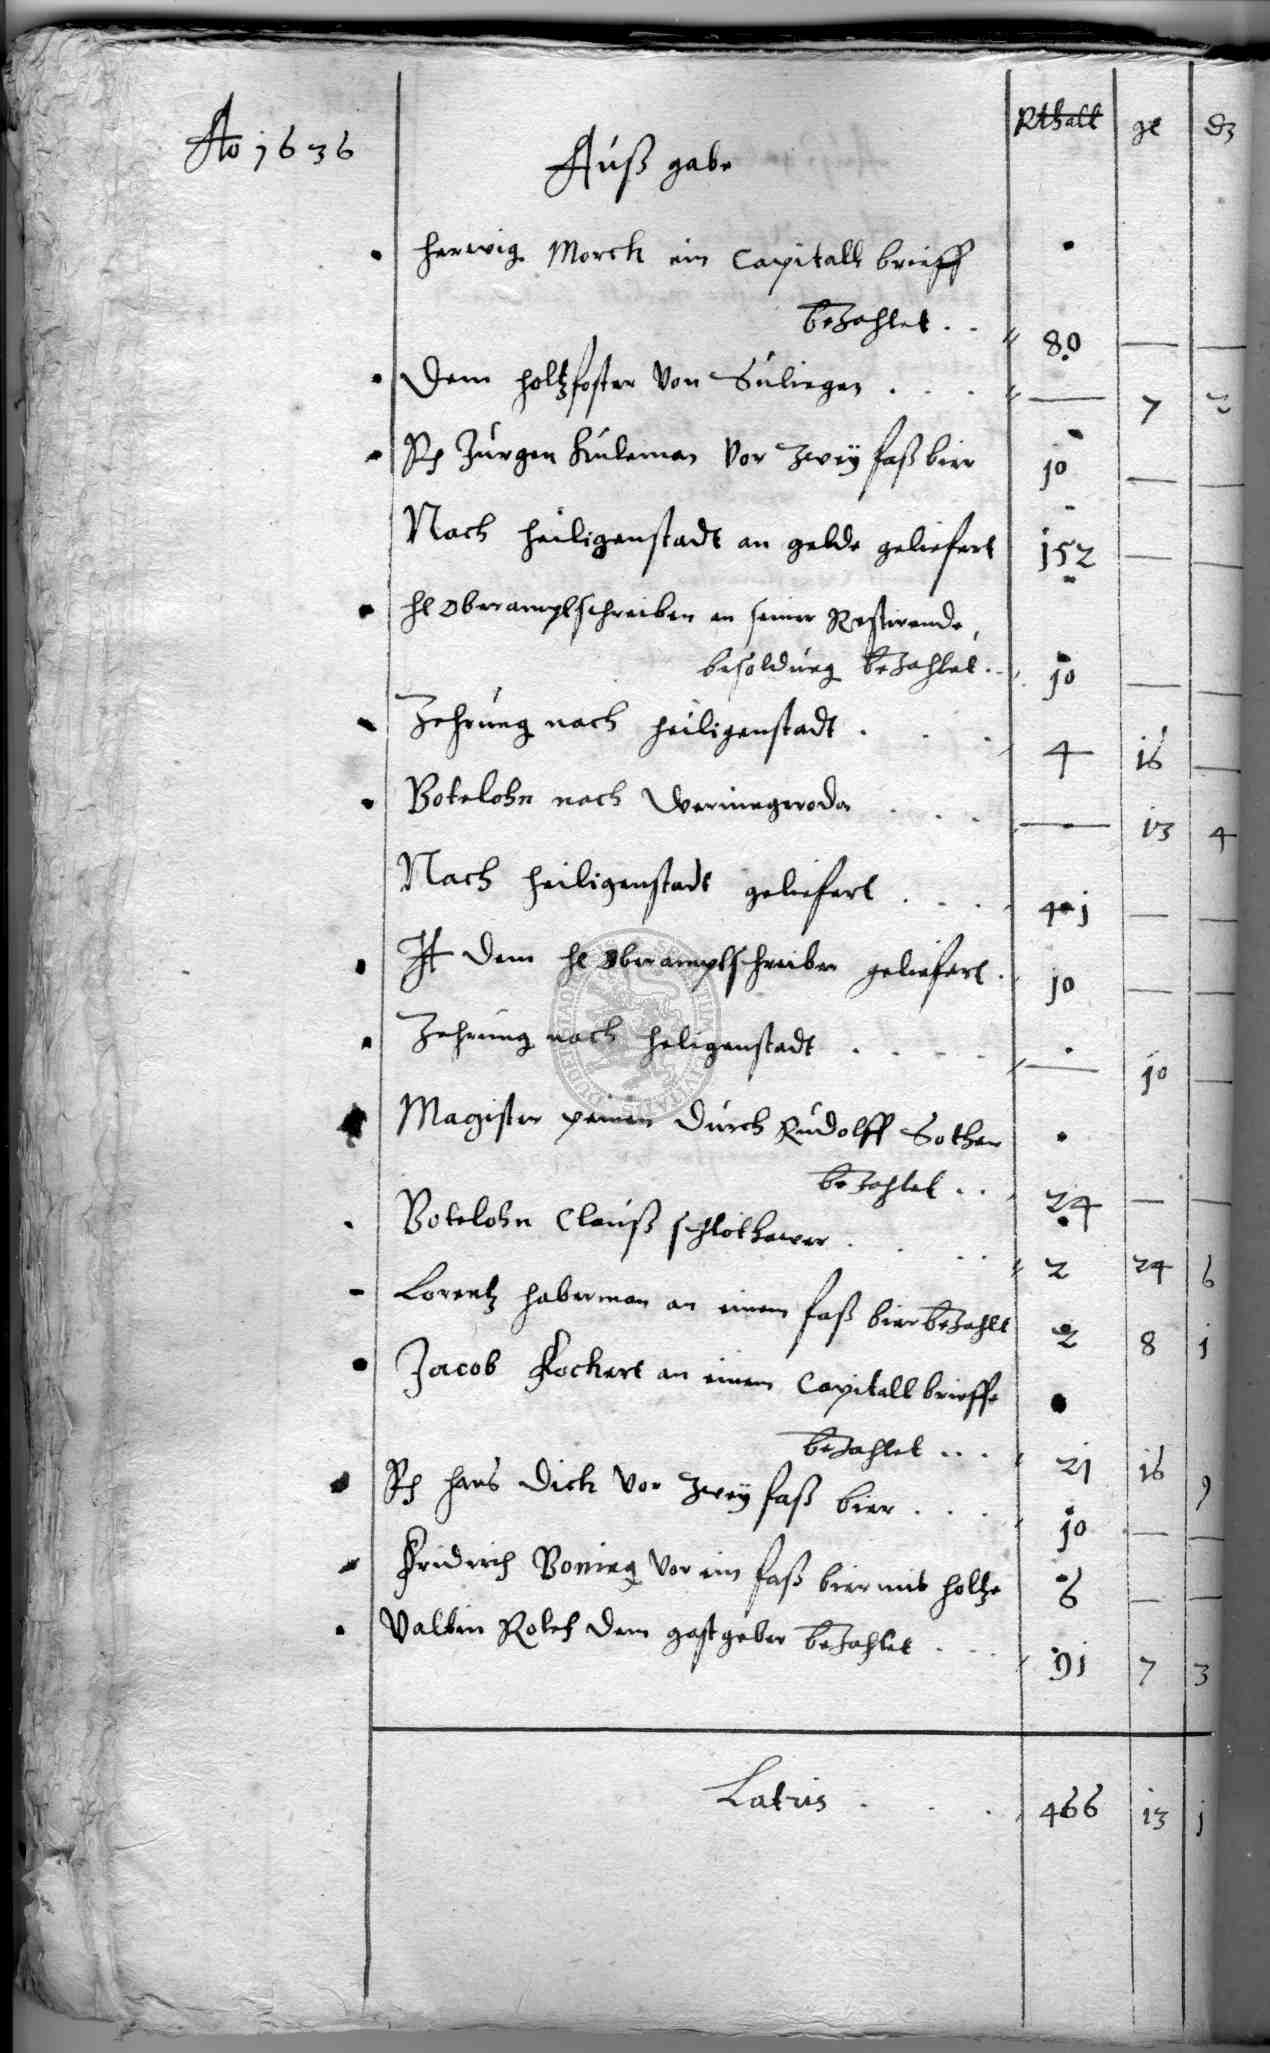 Ao 1636
Außgabe
Rthall gl d
herwig Morck ein Capitall brieff
bezahlet . . 80 — —
Dem holtzforster Von Sulingen . . . — 7 2
Jurgen Kuleman Vor zweÿ faß bier 10 — —
Nach heiligenstadt an gelde geliefert 152 — —
hl Oberamptschreiben an seiner Restirende,
besoldung bezahlet . . 10 — —
Zehrung nach heiligenstadt . . . 4 16 —
Botelohn nach Werningeroda . . . — 13 4
Nach heiligenstadt geliefert . . . 41 — —
It Dem hl Oberamptschreiber geliefert . 10 — —
Zehrung nach heligenstadt . . . . — 10 —
Magister durch Rudolff Sothen
bezahlet . . 24 — —
Botelohn Clauß schlothawer . . . . 2 24 6
Lorentz haberman an einem faß bier bezahlt 2 8 1
Jacob Fockert an einem Capitall brieffe
bezahlet . . . 21 16 9
hans Dick Vor zweÿ faß bier . . . 10 — —
Fridrich Boning Vor ein faß bier mit holtze 6 — —
Valtin dem gastgeber bezahlet . . . 91 7 3
Latus . . . 466 13 1